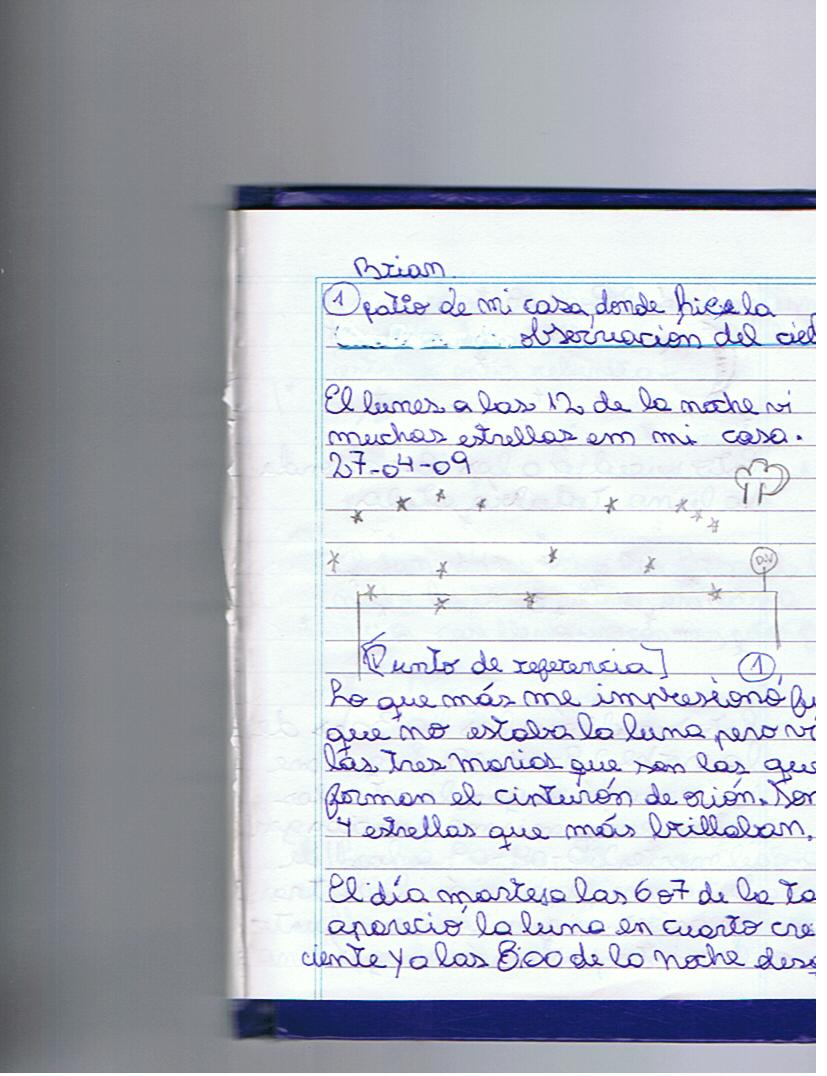 Brian
1 patio de mi casa, donde hice la
observación del ciel
El lunes a las 12 de la noche vi
muchas estrellas em mi casa.
27-04-09
D.V
[Punto de referencia] 1
Lo que más me impresionó fu
que no estaba la luna pero vi
las tres marias que son las que
forman el cinturón de orión. Son
4 estrellas que más brillaban.
El día martes a las 6 o 7 de la ta
apareció la luna en cuarto cre
ciente y a las 8:00 de la noche desa